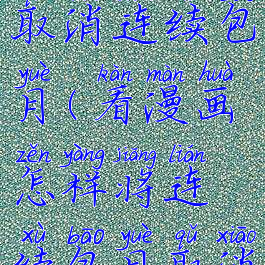 取消连续包
yuè kàn màn huà
月(看漫画
zěn yàng jiāng lián
怎样将连
xù bāo yuè qǔ xiāo
续包月取消